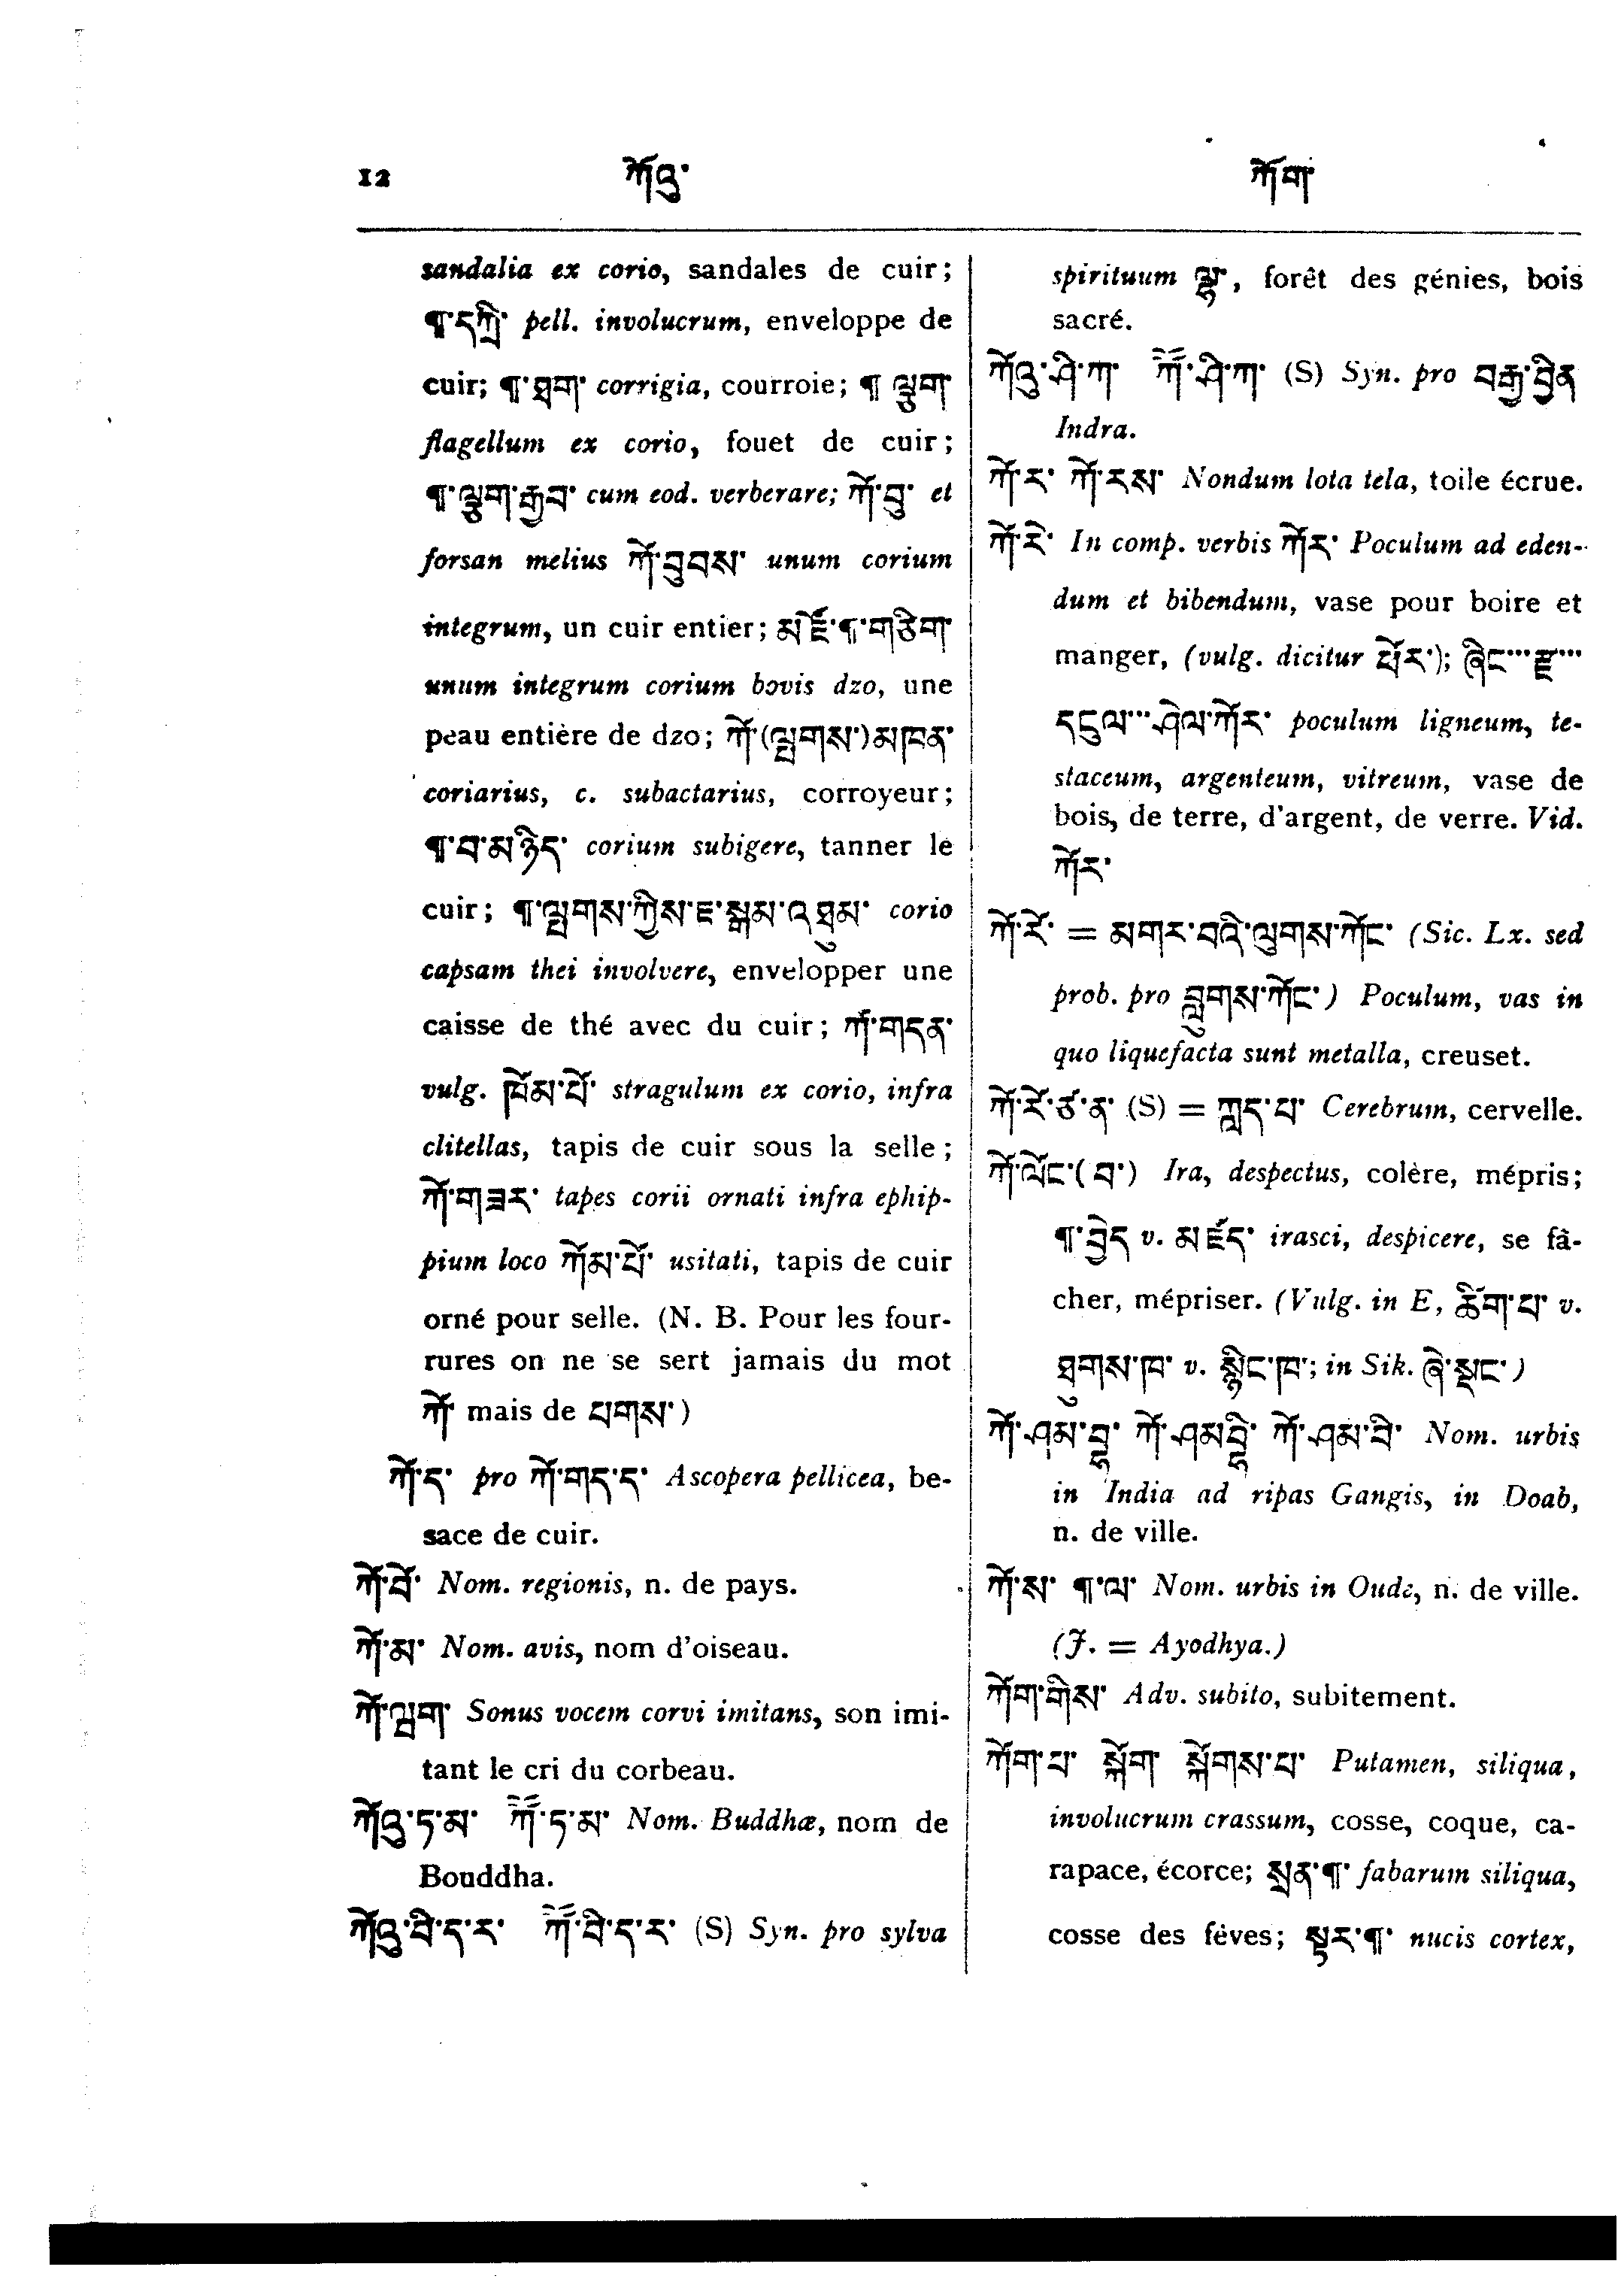 12 ཀོའུ་ ཀོག
sandalia ex corio, sandales de cuir;
¶་དཀྲི་ pell. involucrum, enveloppe de
cuir; ¶་ཐག་ corrigia, courroie; ¶ ལྕུག་
flagellum ex corio, fouet de cuir;
¶་ལྕུག་རྒྱབ་ cum eod. verberare; ཀོ་བུ་ et
forsan melius ཀོ་བུབས་ unum corium
integrum, un cuir entier; མཛོ་¶་གཅིག་
unum integrum corium bovis dzo, une
peau entière de dzo; ཀོ་(ལྤགས་)མཁན་
coriarius, c. subactarius, corroyeur;
¶་བ་མཉེད་ corium subigere, tanner le
cuir; ¶་ལྤགས་ཀྱིས་ཇ་སྒམ་འཐུམ་ corio
capsam thei involvere, envelopper une
caisse de thé avec du cuir; ཀོ་གདན་
vulg. ཁོམ་པོ་ stragulum ex corio, infra
clitellas, tapis de cuir sous la selle;
ཀོ་གཟར་ tapes corii ornati infra ephip-
pium loco ཀོམ་པོ་ usitati, tapis de cuir
orné pour selle. (N. B. Pour les four-
rures on ne se sert jamais du mot
ཀོ་ mais de པགས་)
ཀོ་ད་ pro ཀོ་གད་ད་ Ascopera pellicea, be-
sace de cuir.
ཀོ་བོ་ Nom. regionis, n. de pays.
ཀོ་མ་ Nom. avis, nom d'oiseau.
ཀོ་ལྤག་ Sonus vocem corvi imitans, son imi-
tant le cri du corbeau.
ཀོའུ་ཏ་མ་ ཀཽ་ཏ་མ་ Nom. Buddhæ, nom de
Bouddha.
ཀོའུ་བི་ད་ར་ ཀཽ་བི་ད་ར་ (S) Syn. pro sylva
spirituum ལྷ་, forêt des génies, bois
sacré.
ཀོའུ་ཤི་ཀ་ ཀཽ་ཤི་ཀ་ (S) Syn. pro བརྒྱ་བྱིན
Indra.
ཀོ་ར་ ཀོ་རས་ Nondum lota tela, toile écrue.
ཀོ་རེ་ In comp. verbis ཀོར་ Poculum ad eden-
dum et bibendum, vase pour boire et
manger, (vulg. dicitur ཕོར་); ཞིང་་་རྫ་་་
དངུལ་་་ཤེལ་ཀོར་ poculum ligneum, te-
staceum, argenteum, vitreum, vase de
bois, de terre, d'argent, de verre. Vid.
ཀོར་
ཀོ་རོ་ = མགར་བའི་ལུགས་ཀོང་ (Sic. Lx. sed
prob. pro བླུགས་ཀོང་) Poculum, vas in
quo liquefacta sunt metalla, creuset.
ཀོ་རོ་ཙ་ན་ (S) = ཀླད་པ་ Cerebrum, cervelle.
ཀོ་ལོང་(བ་) Ira, despectus, colère, mépris;
¶་བྱེད v. མཛོད་ irasci, despicere, se fâ-
cher, mépriser. (Vulg. in E, ཚིག་པ་ v.
ཐུགས་ཁ་ v. སྙིང་ཁ་; in Sik. ཞེ་སྡང་)
ཀོ་ཤམ་བྷ་ ཀོ་ཤམབྷི་ ཀོ་ཤམ་བི་ Nom. urbis
in India ad ripas Gangis, in Doab,
n. de ville.
ཀོ་ས་ ¶་ལ་ Nom. urbis in Oude, n. de ville.
(J. = Ayodhya.)
ཀོག་གིས་ Adv. subito, subitement.
ཀོག་པ་ སྐོག་ སྐོགས་པ་ Putamen, siliqua,
involucrum crassum, cosse, coque, ca-
rapace, écorce; སྲན་¶་ fabarum siliqua,
cosse des fèves; སྟར་¶་ nucis cortex,